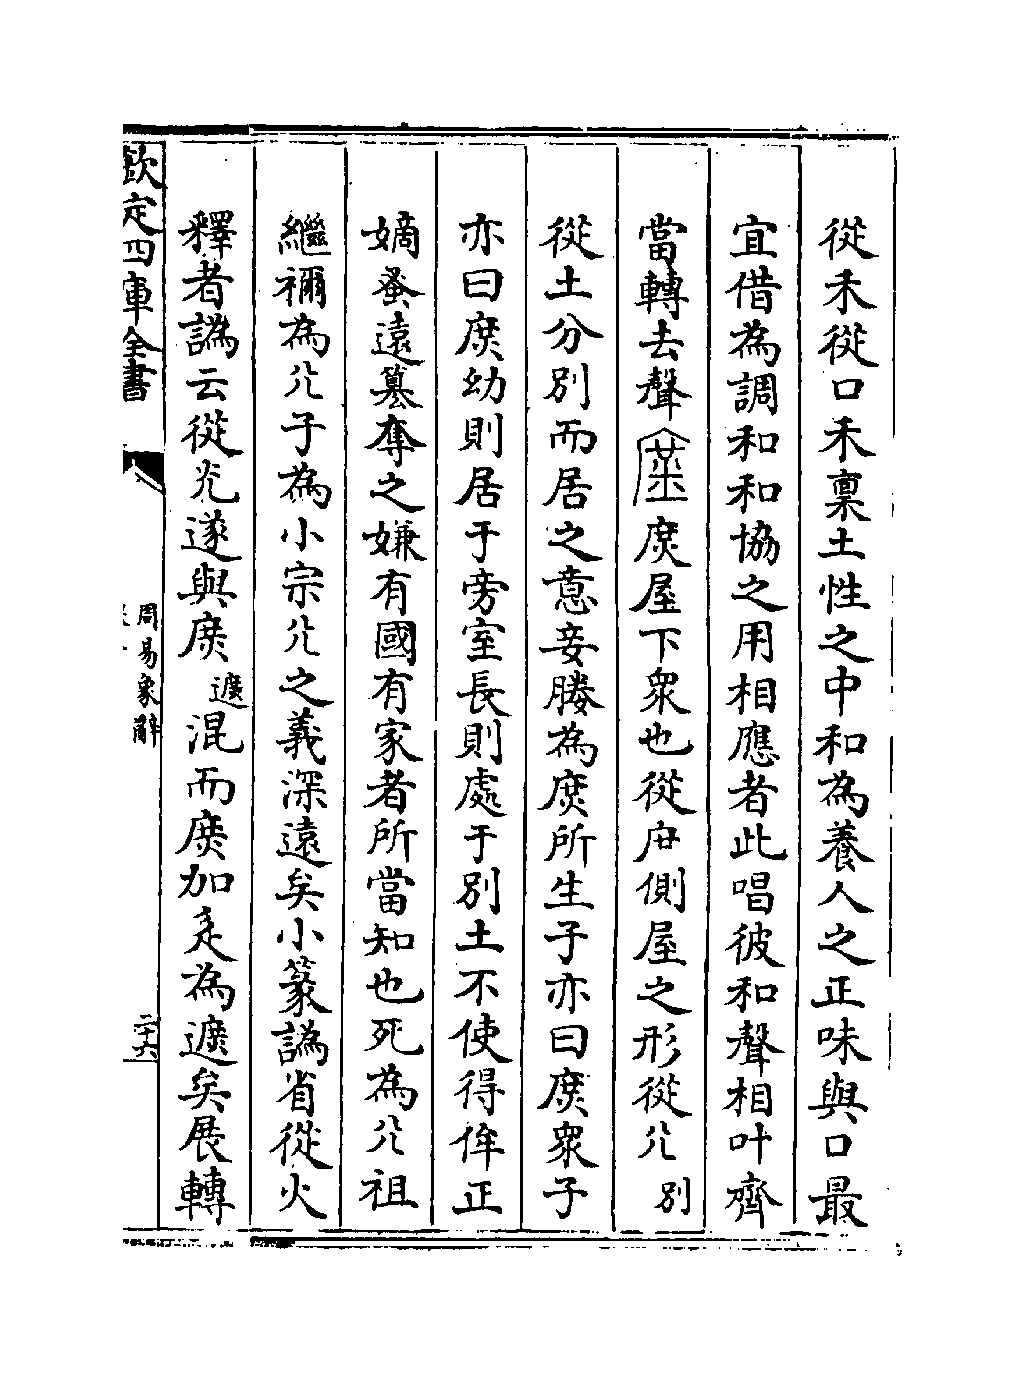 從禾從口禾稟土性之中和為養人之正味與口最
宜借為調和和協之用相應者此唱彼和聲相叶齊
當轉去聲 庻屋下衆也從庐側屋之形從八別
從土分別而居之意妾媵為庻所生子亦曰庻衆子
亦曰庻幼則居于旁室長則處于別土不使得侔正
嫡蚤遠篡奪之嫌有國有家者所當知也死為公祖
繼禰為公子為小宗公之義深遠矣小篆譌省從火
釋者譌云從炗遂與庻遮混而庻加辵為遮矣展轉
欽定四庫全書
周易象辭
二十六